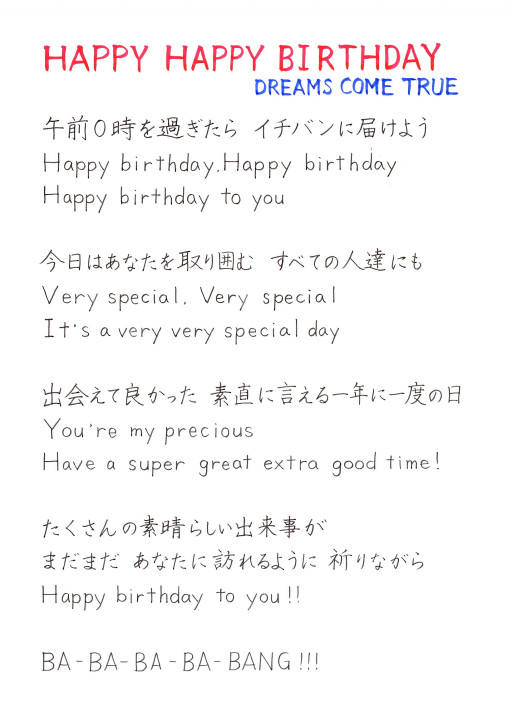 HAPPY HAPPY BIRTHDAY
DREAMS COME TRUE
午前0時を過ぎたら イチバンに届けよう
Happy birthday,Happy birthday
Happy birthday to you
今日はあなたを取り囲む すべての人達にも
Very special, Very special
It's a very very special day
出会えて良かった 素直に言える一年に一度の日
You're my precious
Have a super great extra good time!
たくさんの素晴らしい出来事が
まだまだ あなたに訪れるように 祈りながら
Happy birthday to you!!
BA-BA-BA-BA-BANG!!!